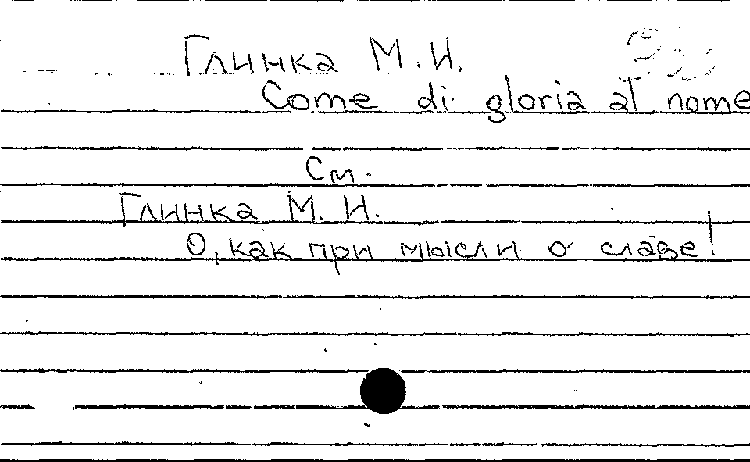 Глинка М. И.
Come di gloria al nome
См.
Глинка М. И.
О, как при мысли о славе!